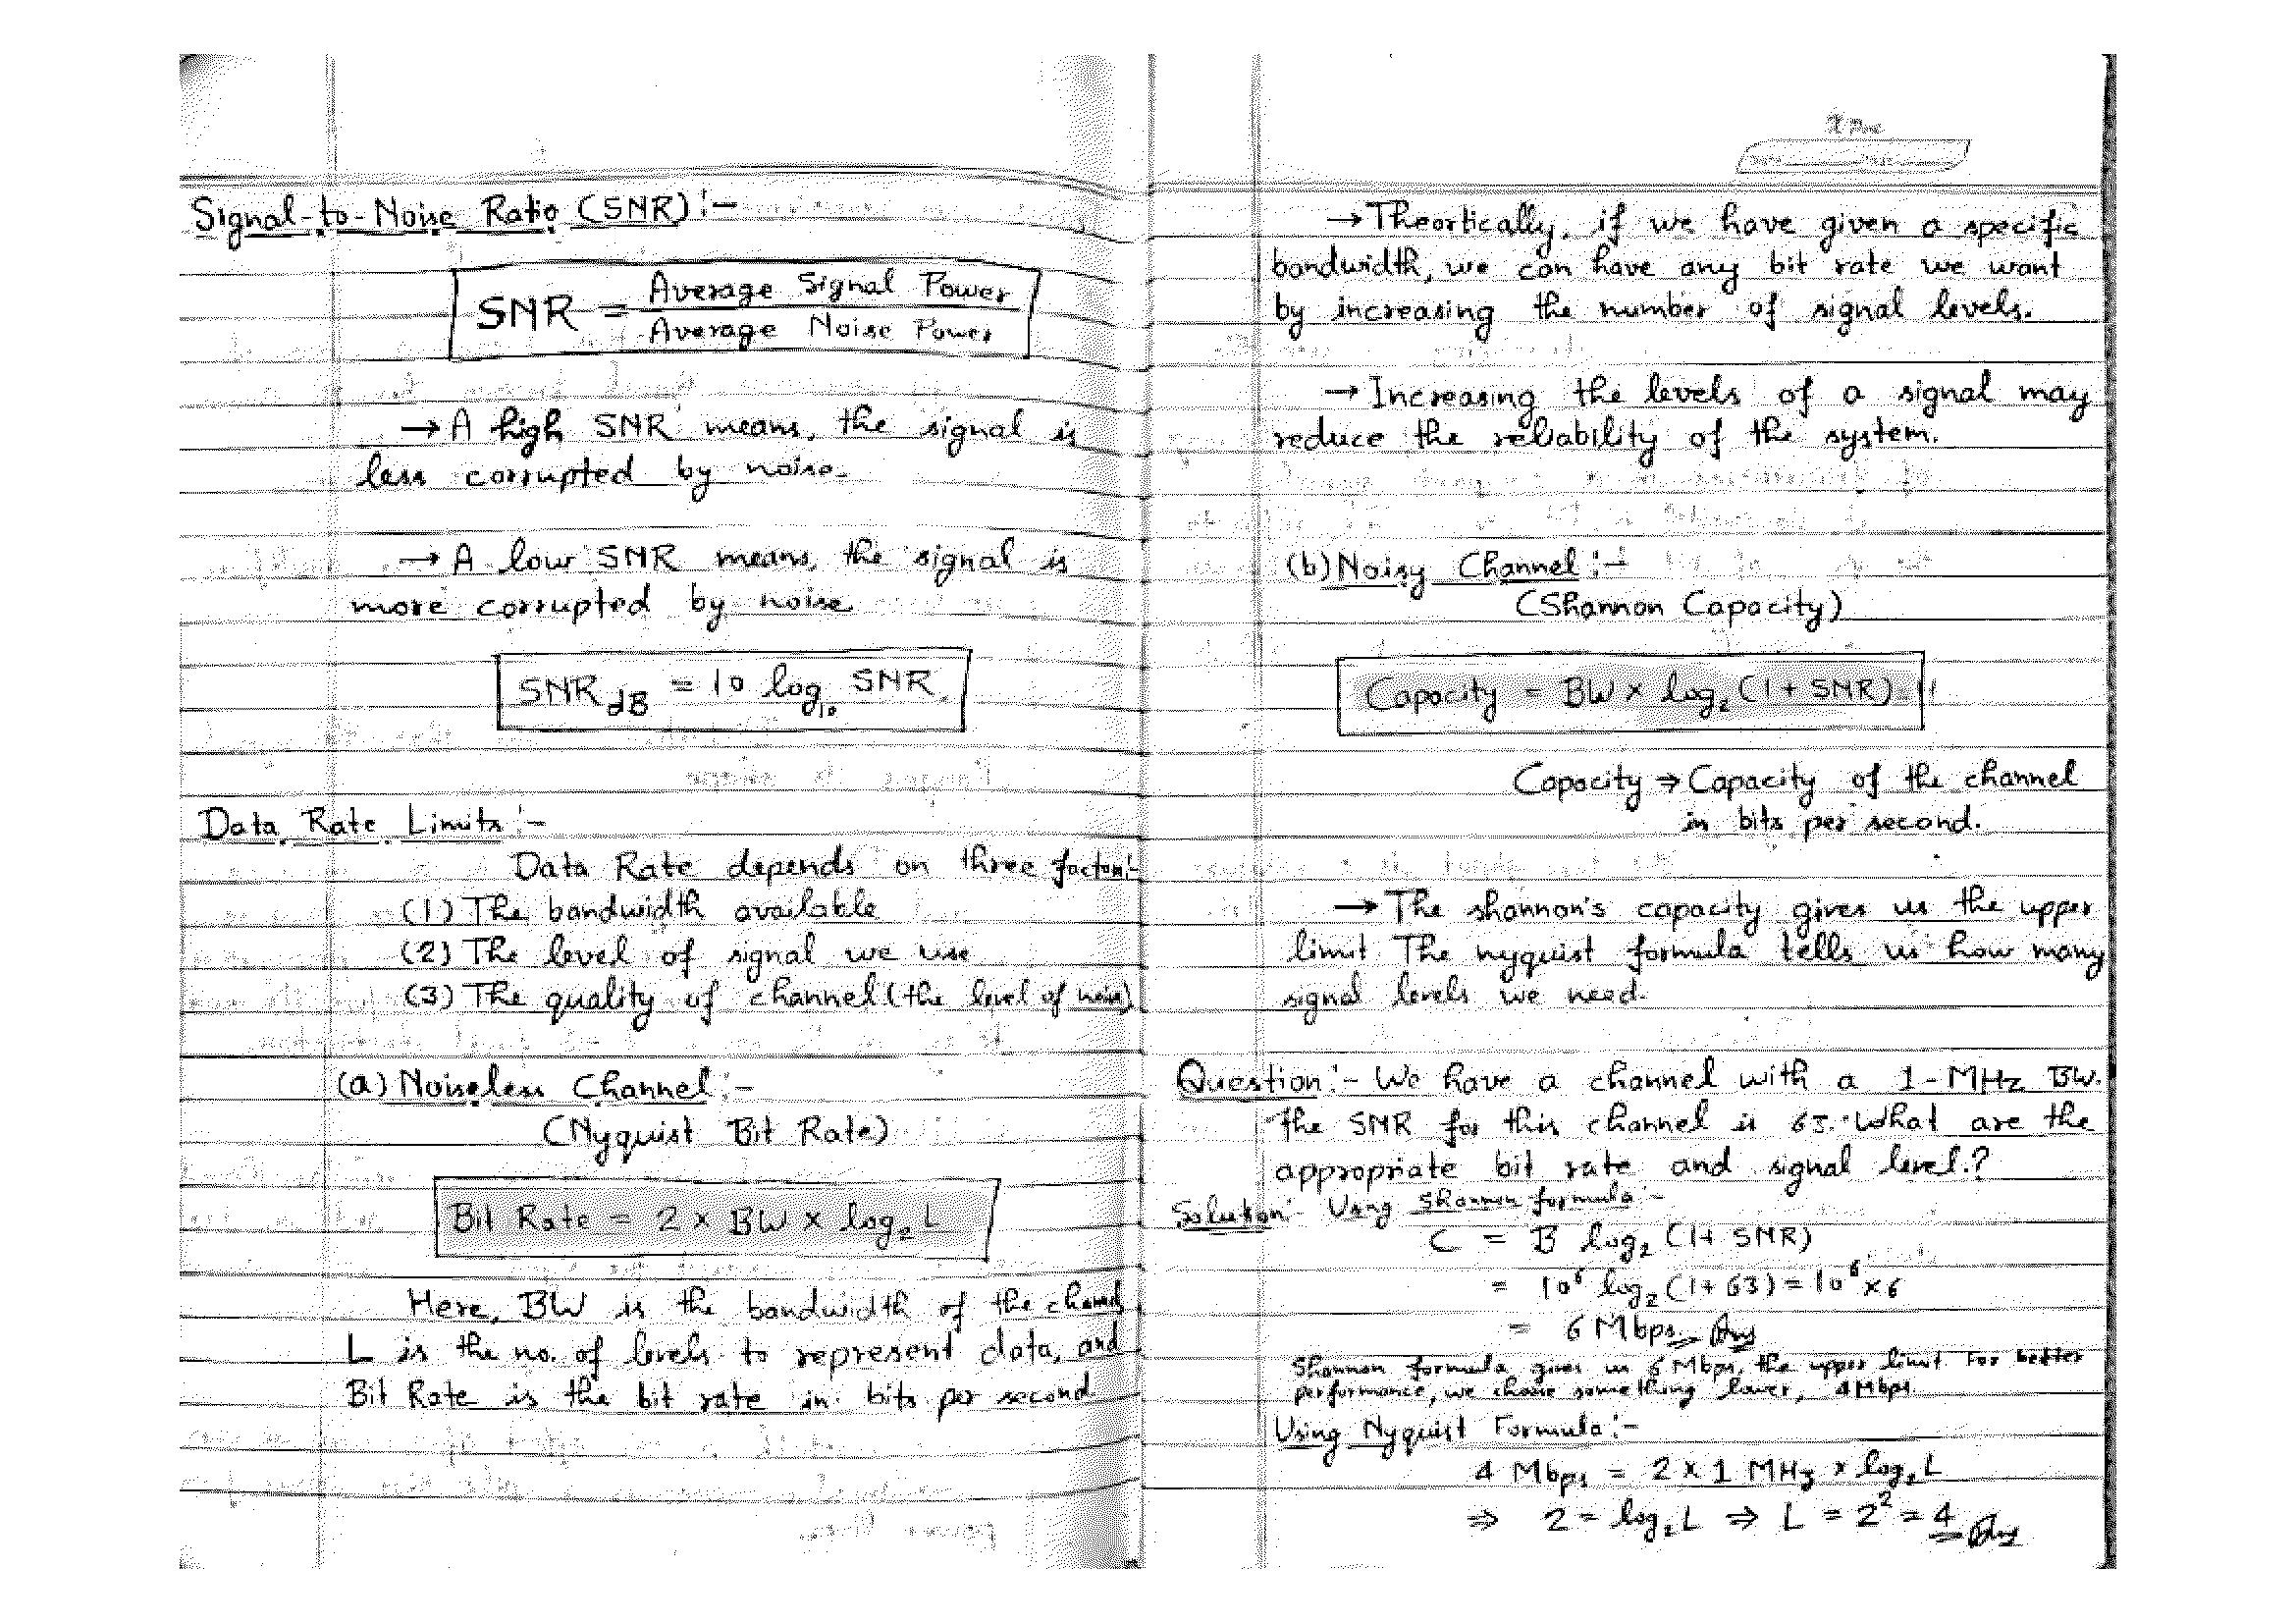 Signal-to-Noise Ratio (SNR):-
SNR = Average Signal Power / Average Noise Power
→ A high SNR means, the signal is
less corrupted by noise.
→ A low SNR means, the signal is
more corrupted by noise
SNR dB = 10 log10 SNR
Data Rate Limits:-
Data Rate depends on three factors:-
(1) The bandwidth available
(2) The level of signal we use
(3) The quality of channel (the level of noise)
(a) Noiseless Channel:-
(Nyquist Bit Rate)
Bit Rate = 2 × BW × log2 L
Here, BW is the bandwidth of the channel
L is the no. of levels to represent data, and
Bit Rate is the bit rate in bits per second
→ Theortically, if we have given a specific
bandwidth, we can have any bit rate we want
by increasing the number of signal levels.
→ Increasing the levels of a signal may
reduce the reliability of the system.
(b) Noisy Channel:-
(Shannon Capacity)
Capacity = BW × log2 (1 + SNR)
Capacity ⇒ Capacity of the channel
in bits per second.
→ The shannon's capacity gives us the upper
limit The nyquist formula tells us how many
signal levels we need.
Question:- We have a channel with a 1-MHz BW.
The SNR for this channel is 63. What are the
appropriate bit rate and signal level.?
Solution:- Using Shannon formula:-
C = B log2 (1+ SNR)
= 10⁶ log2 (1+ 63) = 10⁶ × 6
= 6 Mbps Ans
Shannon formula gives us 6 Mbps, the upper limit For better
performance, we choose something lower, 4 Mbps.
Using Nyquist Formula:-
4 Mbps = 2 × 1 MHz × log2 L
⇒ 2 = log2 L ⇒ L = 2² = 4 Ans